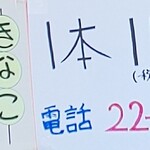 きなこ
1本1
電話 22-